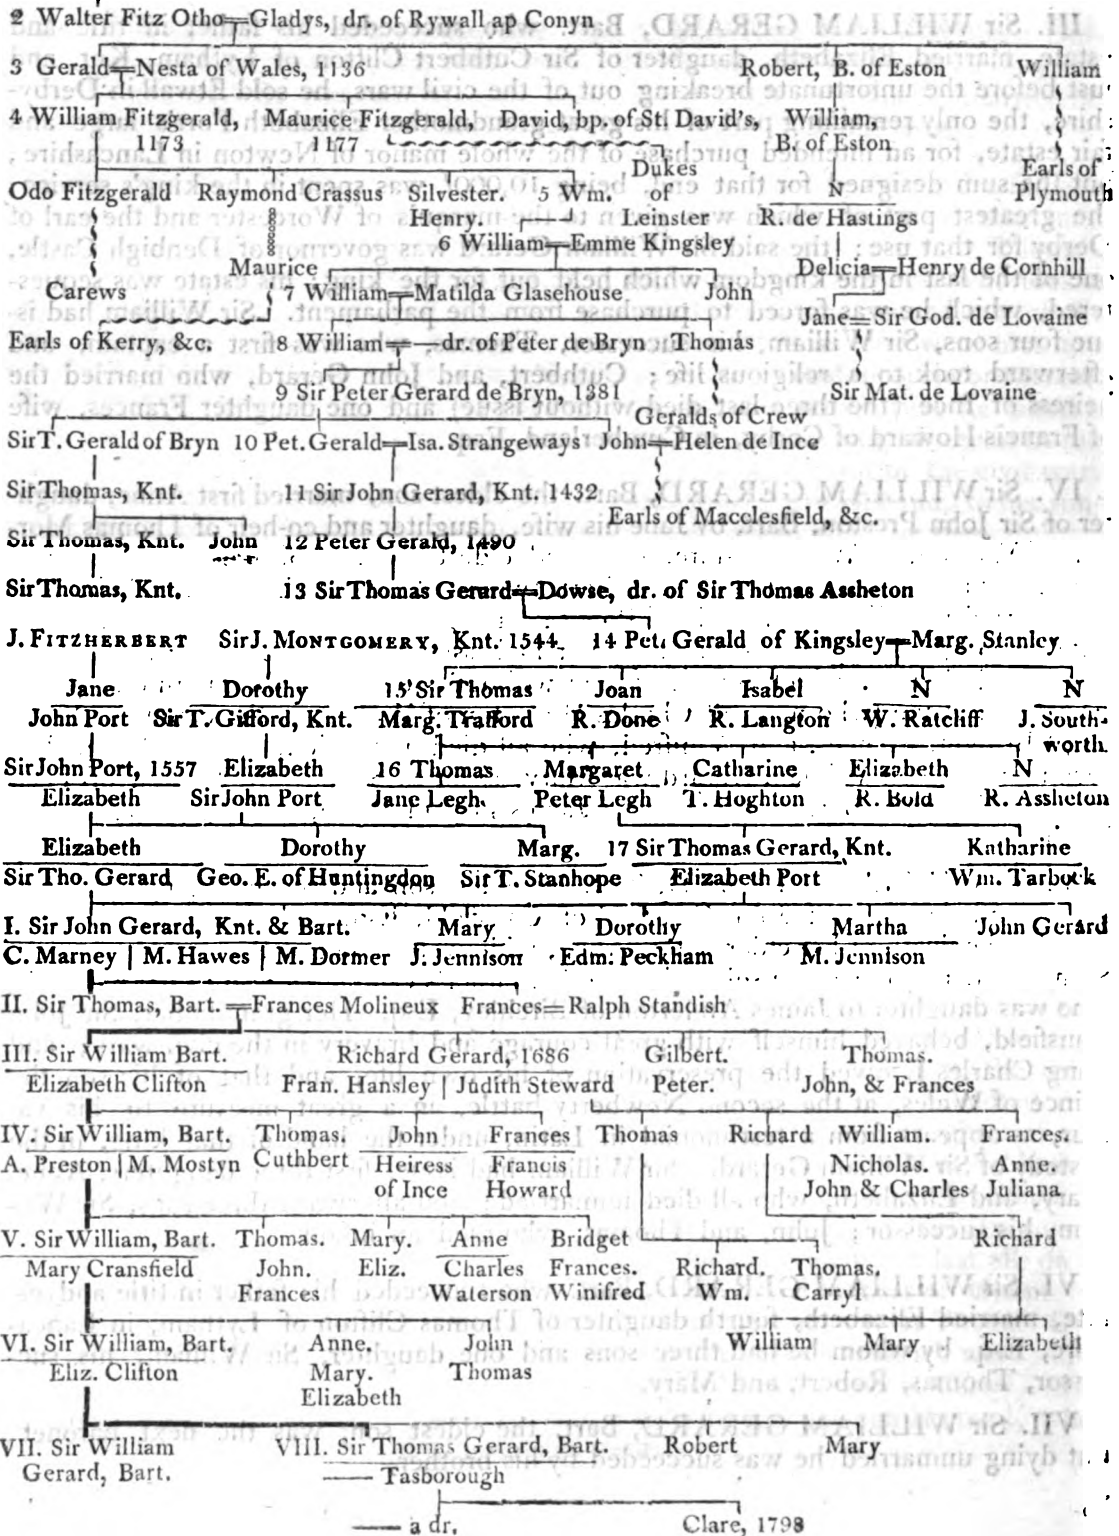 2 Walter Fitz Otho=Gladys, dr. of Rywall ap Conyn
3 Gerald=Nesta of Wales, 1136 Robert, B. of Eston William
4 William Fitzgerald, Maurice Fitzgerald, David, bp. of St. David's, William,
1173 1177 B. of Eston
Dukes Earls of
Odo Fitzgerald Raymond Crassus Silvester. 5 Wm. of N Plymouth
Henry. Leinster R. de Hastings
6 William=Emme Kingsley
Maurice Delicia=Henry de Cornhill
Carews 7 William=Matilda Glasehouse John
Jane=Sir God. de Lovaine
Earls of Kerry, &c. 8 William=—dr. of Peter de Bryn Thomas
9 Sir Peter Gerard de Bryn, 1381 Sir Mat. de Lovaine
Geralds of Crew
Sir T. Gerald of Bryn 10 Pet. Gerald=Isa. Strangeways John=Helen de Ince
Sir Thomas, Knt. 11 Sir John Gerard, Knt. 1432
Earls of Macclesfield, &c.
Sir Thomas, Knt. John 12 Peter Gerald, 1490
Sir Thomas, Knt. 13 Sir Thomas Gerard=Dowse, dr. of Sir Thomas Assheton
J. FITZHERBERT Sir J. MONTGOMERY, Knt. 1544 14 Pet. Gerald of Kingsley=Marg. Stanley
Jane Dorothy 15 Sir Thomas Joan Isabel N N
John Port Sir T. Gifford, Knt. Marg. Trafford R. Done R. Langton W. Ratcliff J. South-
worth.
Sir John Port, 1557 Elizabeth 16 Thomas Margaret Catharine Elizabeth N
Elizabeth Sir John Port Jane Legh. Peter Legh T. Hoghton R. Bold R. Assheton
Elizabeth Dorothy Marg. 17 Sir Thomas Gerard, Knt. Katharine
Sir Tho. Gerard Geo. E. of Huntingdon Sir T. Stanhope Elizabeth Port Wm. Tarbock
I. Sir John Gerard, Knt. & Bart. Mary Dorothy Martha John Gerard
C. Marney | M. Hawes | M. Dormer J. Jennison Edm. Peckham M. Jennison
II. Sir Thomas, Bart.=Frances Molineux Frances=Ralph Standish
III. Sir William Bart. Richard Gerard, 1686 Gilbert. Thomas.
Elizabeth Clifton Fran. Hansley | Judith Steward Peter. John, & Frances
IV. Sir William, Bart. Thomas. John Frances Thomas Richard William. Frances.
A. Preston | M. Mostyn Cuthbert Heiress Francis Nicholas. Anne.
of Ince Howard John & Charles Juliana
V. Sir William, Bart. Thomas. Mary. Anne Bridget Richard
Mary Cransfield John. Eliz. Charles Frances. Richard. Thomas.
Frances Waterson Winifred Wm. Carryl
VI. Sir William, Bart. Anne. John William Mary Elizabeth
Eliz. Clifton Mary. Thomas
Elizabeth
VII. Sir William VIII. Sir Thomas Gerard, Bart. Robert Mary
Gerard, Bart. —— Tasborough
—— a dr. Clare, 1798